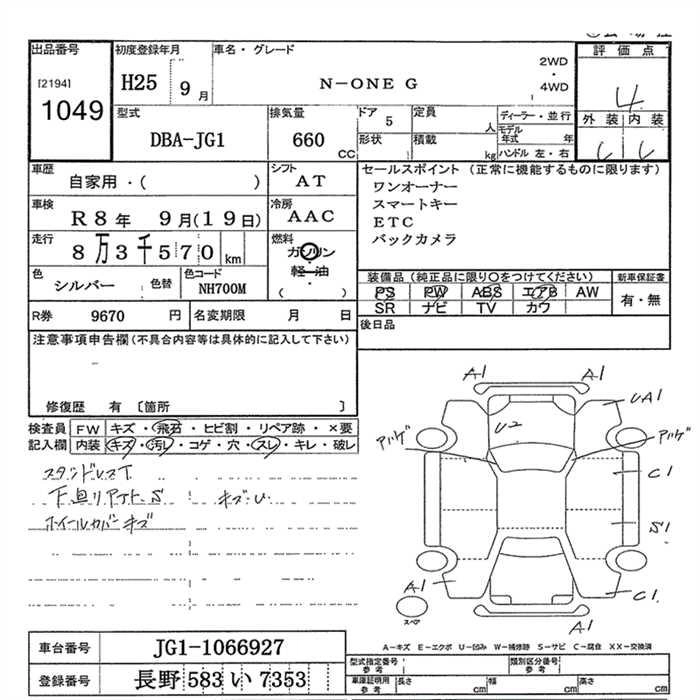 出品番号 初度登録年月 車名・グレード 評価点
[2194] H25 9月 N-ONE G 2WD・4WD 4
1049
型式 DBA-JG1 排気量 660 CC ドア 5 定員 人 ディーラー・並行 外装 内装
形状 積載 kg モデル年式 年
ハンドル 左・右
車歴 自家用・( ) シフト AT セールスポイント (正常に機能するものに限ります)
ワンオーナー
車検 R8年 9月(19日) 冷房 AAC スマートキー
ETC
走行 8万3千570km 燃料 ガソリン・軽油・( ) バックカメラ
色 シルバー 色替 色コード NH700M 装備品(純正品に限り○をつけてください) 新車保証書
PS PW ABS エアB AW 有・無
SR ナビ TV カワ
R券 9670 円 名変期限 月 日 後日品
注意事項申告欄(不具合内容等は具体的に記入して下さい)
修復歴 有 〔箇所 〕
検査員 FW キズ・飛石・ヒビ割・リペア跡・×要
記入欄 内装 キズ・汚レ・コゲ・穴・スレ・キレ・破レ
キズ・U
ホイールカバーキズ
A1 A1
U2 UA1
C1
S1
A1 C1
スペア
A1
A−キズ E−エクボ U−凹み W−補修跡 S−サビ C−腐食 XX−交換済
車台番号 JG1-1066927
型式指定番号 参考 類別区分番号 参考
登録番号 長野 583 い 7353
車庫証明用 参考 長さ cm 幅 cm 高さ cm